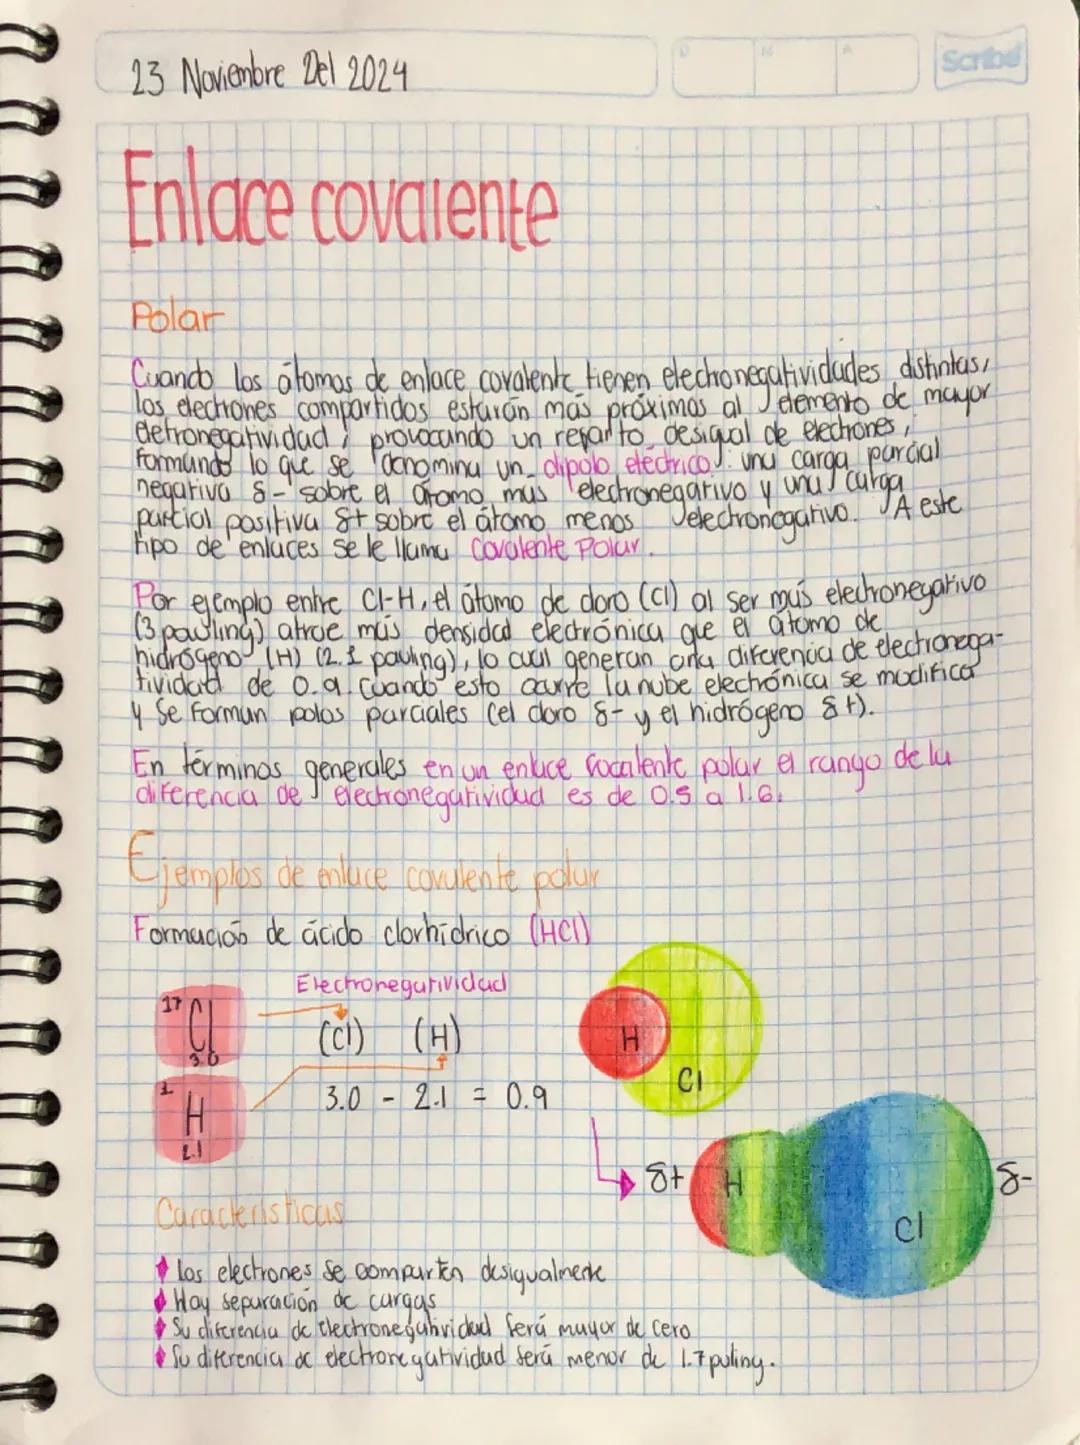 23 Noviembre Del 2024
Scribe
Enlace covalente
Polar
Cuando los átomos de enlace covalente tienen electronegatividades distintas,
los electrones compartidos estarán más próximos al elemento de mayor
eletronegatividad, provocando un reparto desigual de electrones,
formando lo que se denomina un dipolo eléctrico: una carga parcial
negativa δ- sobre el átomo más electronegativo y una carga
parcial positiva δ+ sobre el átomo menos electronegativo. A este
tipo de enlaces se le llama Covalente Polar.
Por ejemplo entre Cl-H, el átomo de cloro (Cl) al ser más electronegativo
(3 pauling) atrae más densidad electrónica que el átomo de
hidrógeno (H) (2.1 pauling), lo cual generan una diferencia de electronega-
tividad de 0.9. Cuando esto ocurre la nube electrónica se modifica
y se forman polos parciales (el cloro δ- y el hidrógeno δ+).
En términos generales en un enlace cocalente polar el rango de la
diferencia de electronegatividad es de 0.5 a 1.6.
Ejemplos de enlace covalente polar
Formación de ácido clorhídrico (HCl)
Electronegatividad
17 Cl 3.0
(Cl) (H)
1 H 2.1
3.0 - 2.1 = 0.9
H
Cl
δ+ H Cl δ-
Características
Los electrones se comparten desigualmente
Hay separación de cargas
Su diferencia de electronegatividad será mayor de cero
Su diferencia de electronegatividad será menor de 1.7 puling.